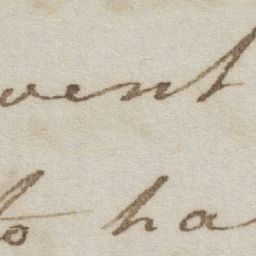 went
to ha